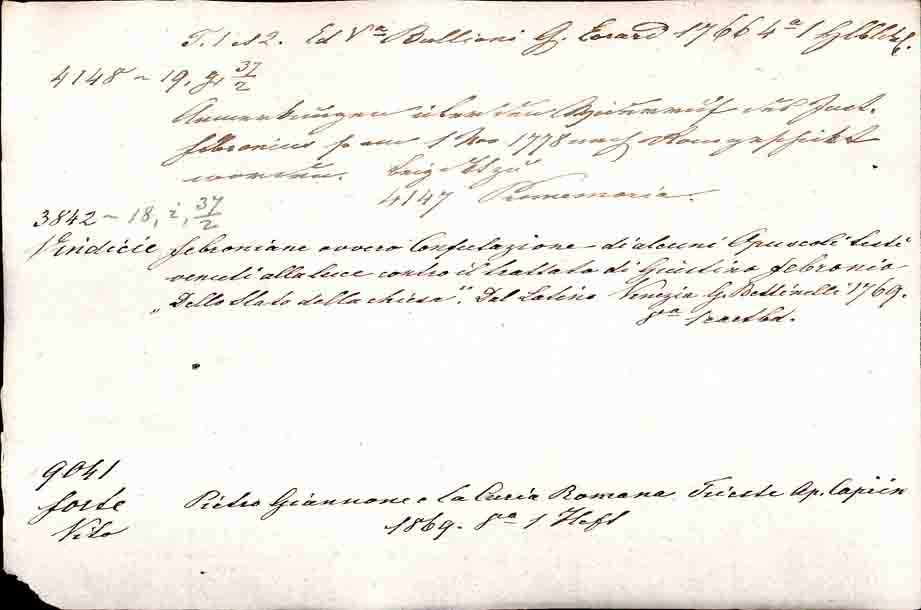 T. 1 et 2. Ed Va Ballioni G. Evrard 1766 4a 1 Hblbd.
4148 ~ 19, g, 37/2
Anmerkungen über den Widerruf des Just.
febronius so am 1 Nov 1778 nach Rom geschickt
worden.
4147 Promemoria.
3842 ~ 18, i, 37/2
Vindicie febroniane ovvero Confutazione di alcuni Opuscoli testè
venuti alla luce contro il trattato di Giustino febronio
„Dello Stato della chiesa". Dal Latino Venezia G. Bettinelli 1769.
8a
9041
forte Pietro Giannone e la Curia Romana Trieste Ap. Caprin
Vito 1869. 8a 1 Heft